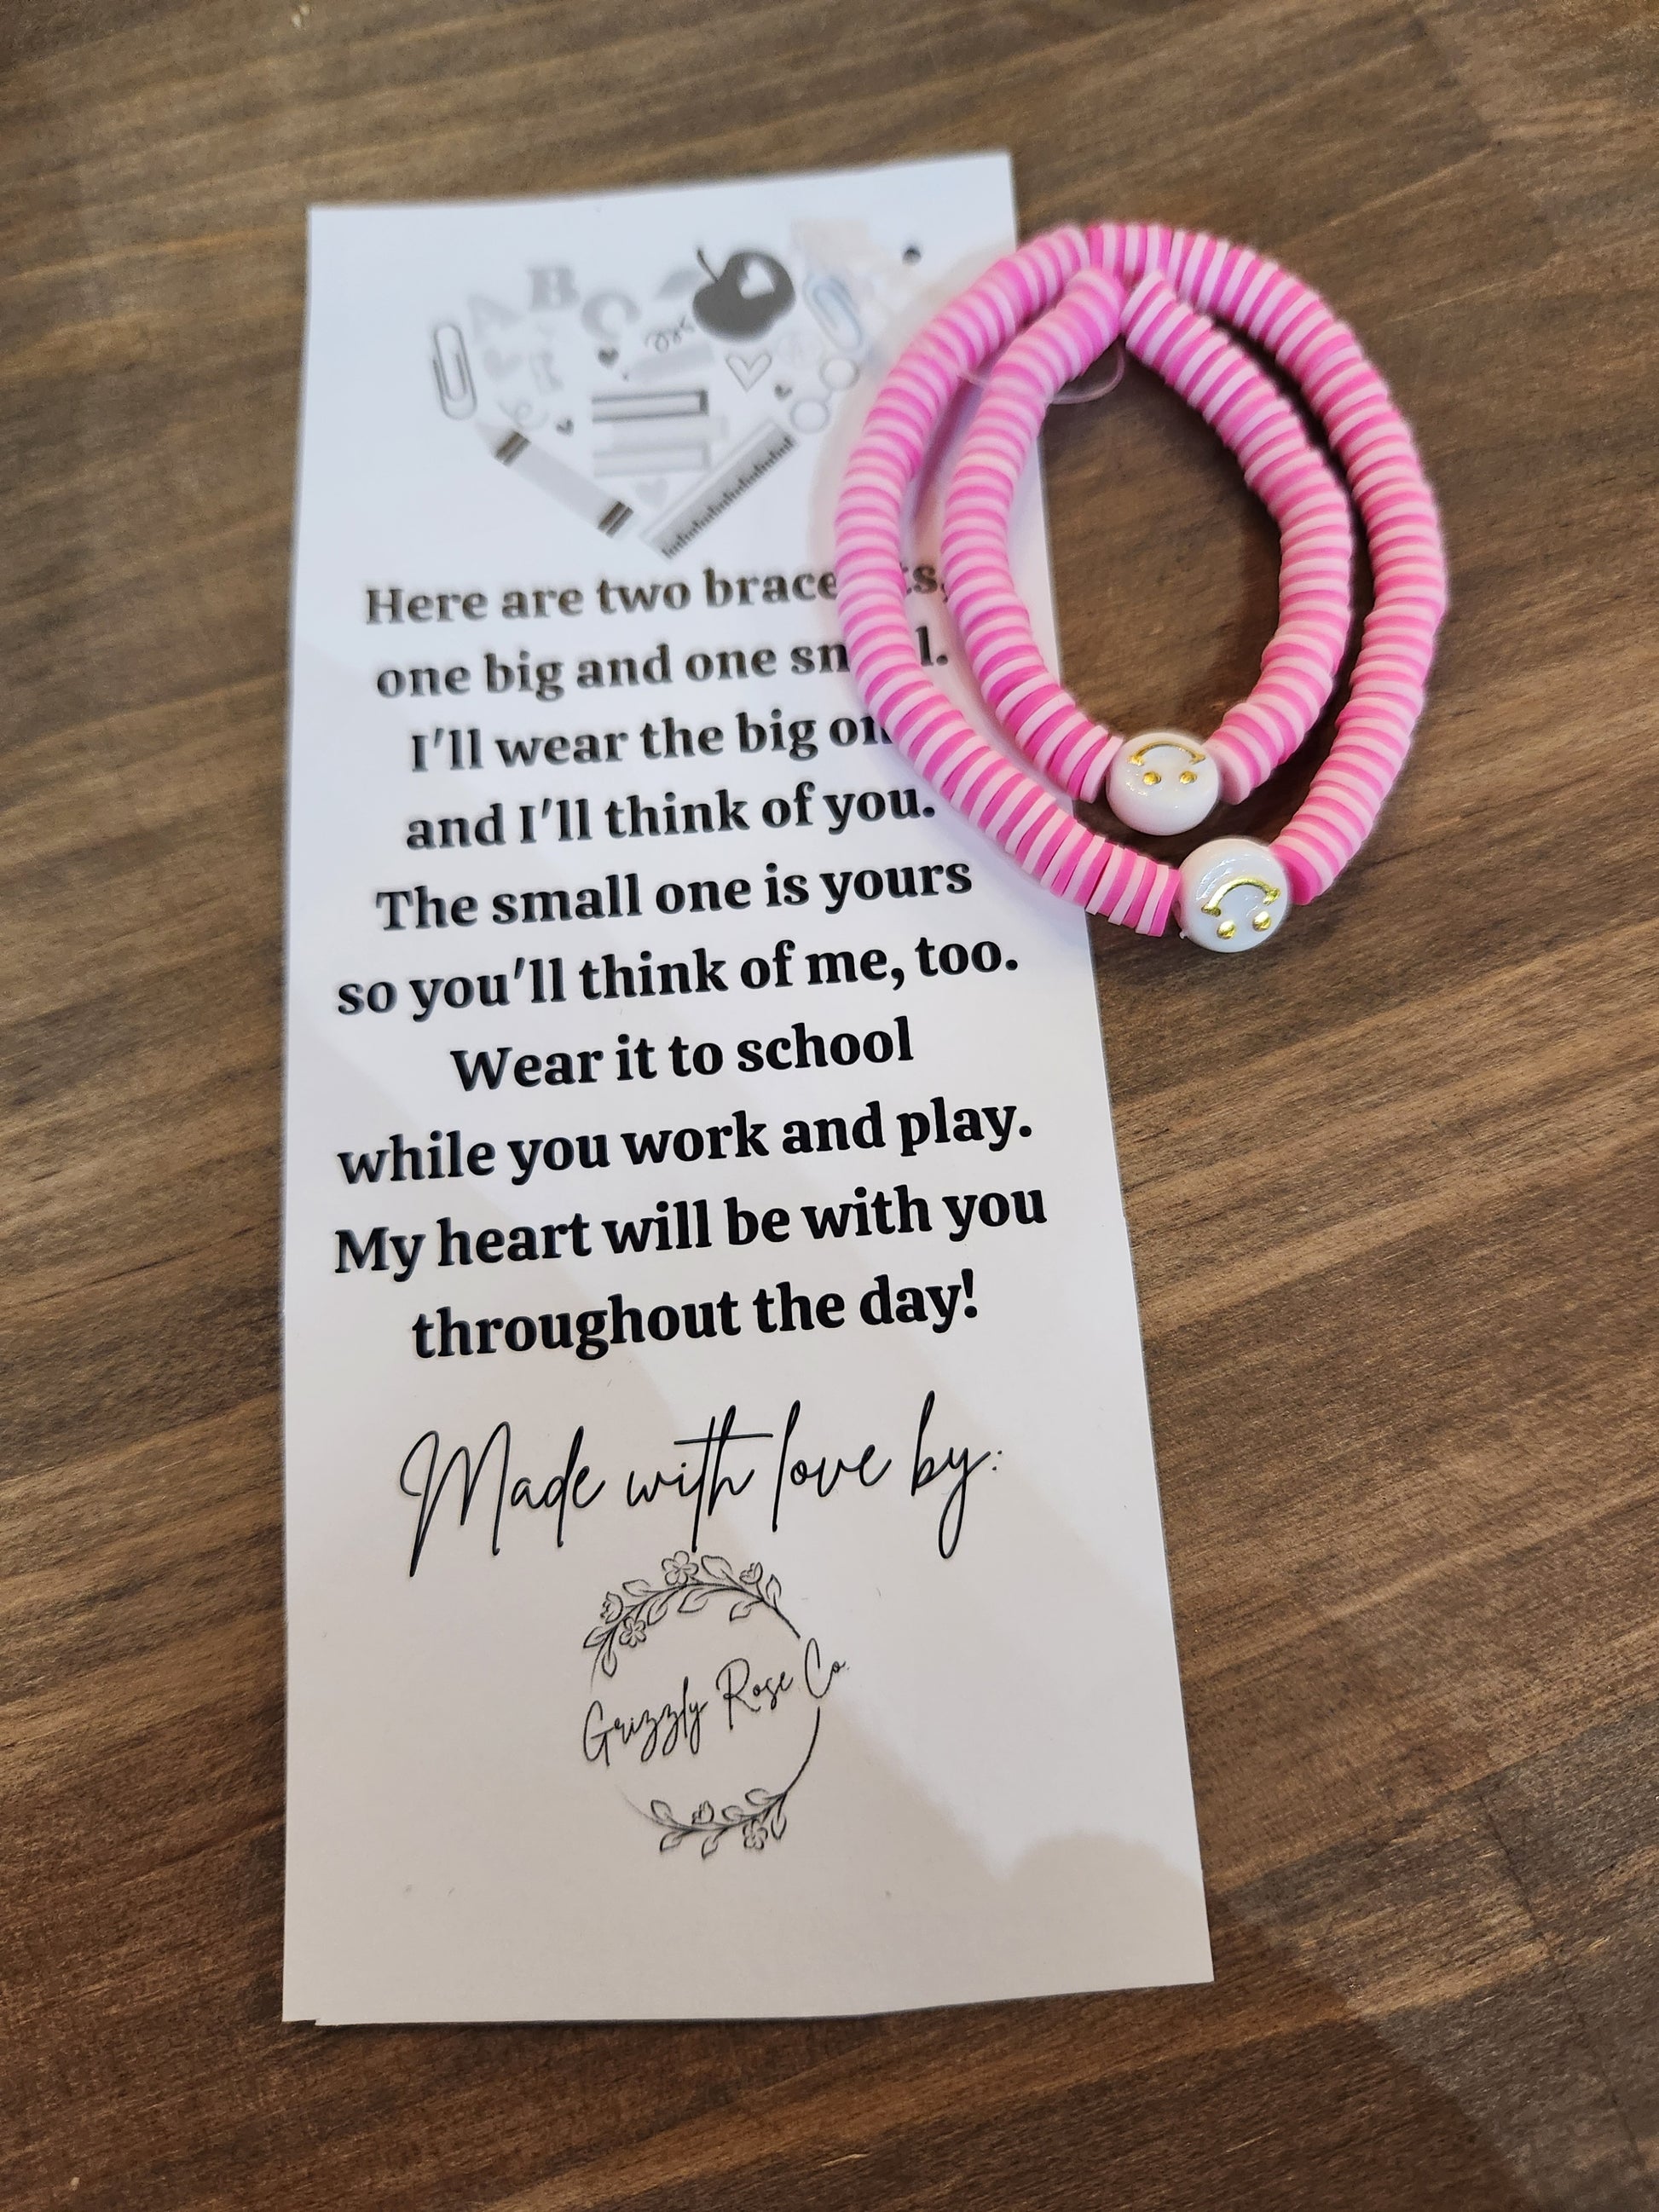 A B C
Here are two brace ts,
one big and one sm l.
I'll wear the big on
and I'll think of you.
The small one is yours
so you'll think of me, too.
Wear it to school
while you work and play.
My heart will be with you
throughout the day!
Made with love by:
Grizzly Rose Co.